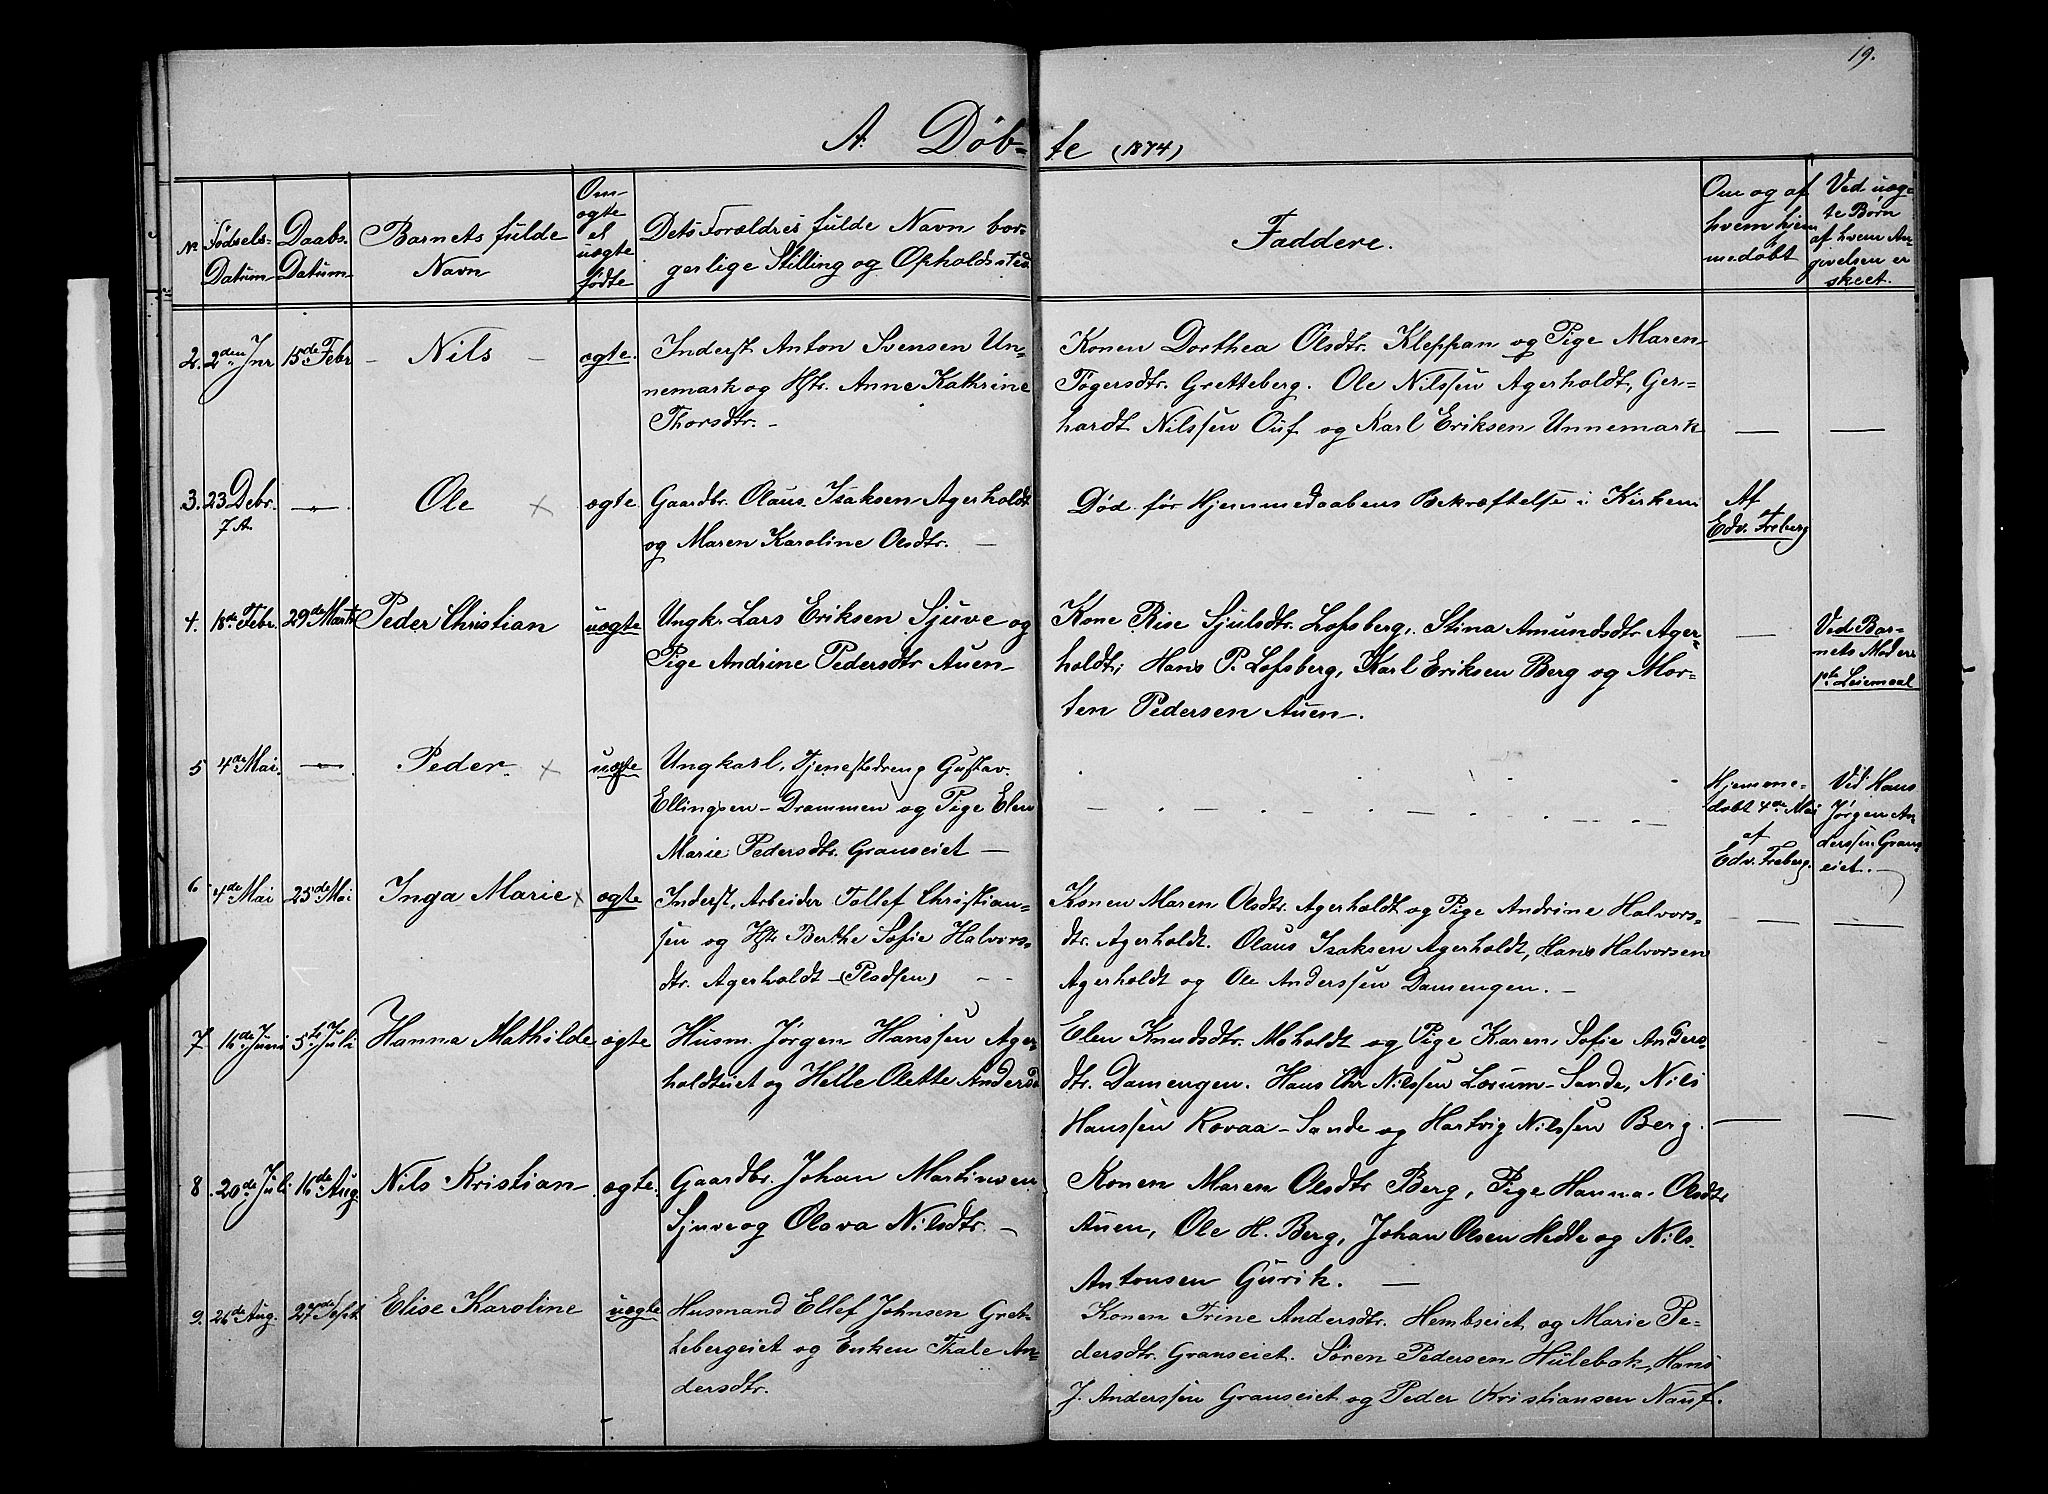 19.
A. Døb- te (1874)
No Fødsels- Datum
Daabs- Datum
Barnets fulde Navn
Om ægte el uægte fødte
Dets Forældres fulde Navn bor-
gerlige Stilling og Opholdssted
Faddere.
Om og af hvem hjem medøbt
Ved uæg- te Børn af hvem An- givelsen er skeet.
2. 2den Jnr 15de Febr - Nils - ægte.
Inderst Anton Svensen Un-
nemark og Hstr. Anne Kathrine
Thorsdtr. -
Konen Dorthea Olsdtr. Kleppan og Pige Maren
Tøgersdtr. Gretteberg. Ole Nilssen Agerholdt, Ger-
hardt Nilssen Ouf og Karl Eriksen Unnemark
3. 23 Debr. 7 A. -"- Ole ægte
Gaardbr. Olaus Isaksen Agerholdt
og Maren Karoline Olsdtr. -
Død før Hjemmedaabens Bekræftelse i Kirken
Af
Edv. Freberg
4. 18de Febr. 29de Marts Peder Christian uægte
Ungk. Lars Eriksen Sjuve og
Pige Andrine Pedersdtr Auen-
Kone Rise Sjulsdtr. Lofsberg, Stina Amundsdtr Ager-
holdt; Hans P. Lofsberg, Karl Eriksen Berg og Mor-
ten Pedersen Auen-.
Ved Bar-
nets Moder
1ste Leiemaal
5 4de Mai -"- Peder. uægte
Ungkarl, Tjenestedreng Gustav
Ellingsen - Drammen og Pige Elen
Marie Pedersdtr. Granseiet -
Hjemme-
døbt 4de Mai
af
Edv. Freberg.
Ved Hans
Jørgen An-
derssen Grans-
eiet.
6 4de Mai 25de Mai Inga Marie ægte
Inderst, Arbeider Tollef Christian-
sen og Hstr Berthe Sofie Halvors-
dtr. Agerholdt - (Pladsen) - -
Konen Maren Olsdtr. Agerholdt og Pige Andrine Halvors-
dtr. Agerholdt. Olaus Isaksen Agerholdt, Hans Halvorsen
Agerholdt og Ole Anderssen Damengen. -
7. 16de Juni 5te Juli Hanna Mathilde ægte
Husm. Jørgen Hanssen Ager-
holdteiet og Helle Olette Andersd
Elen Knudsdtr. Moholdt og Pige Karen Sofie Anders-
dtr. Damengen. Hans Chr Nilssen Lærum - Sande, Nils
Hanssen Kovaa - Sande og Hartvig Nilssen Berg.
8. 20de Juli 16de Aug. Nils Kristian ægte.
Gaardbr. Johan Martinsen
Sjuve og Olava Nilsdtr. -
Konen Maren Olsdtr Berg, Pige Hanna Olsdtr
Auen, Ole H. Berg, Johan Olsen Hedte og Nils
Antonsen Gurik. -
9. 26de Aug. 27de Sept. Elise Karoline uægte
Husmand Ellef Johnsen Gret-
tebergeiet og Enken Thale An-
dersdtr.
Konen Trine Andersdtr. Hembseiet og Marie Pe-
dersdtr. Granseiet. Søren Pedersen Hulebak, Hans
J. Anderssen Granseiet og Peder Kristiansen Nauf.